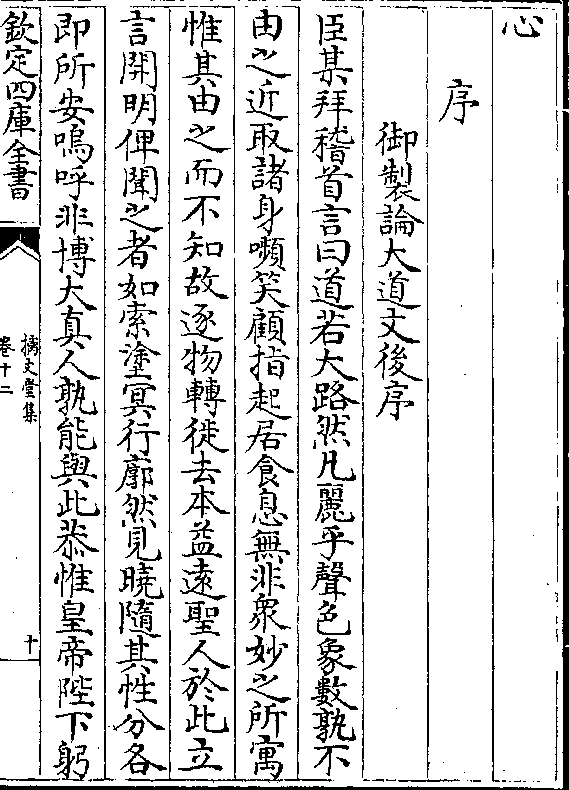 心
序
御製論大道文後序
臣某拜稽首言曰道若大路然凡麗乎聲色象數孰不
由之近取諸身嚬笑顧指起居食息無非衆妙之所寓
惟其由之而不知故逐物轉徙去本益遠聖人於此立
言開明俾聞之者如索塗冥行廓然見曉隨其性分各
即所安嗚呼非博大真人孰能與此恭惟皇帝陛下躬
欽定四庫全書
摛文堂集
卷十二
十